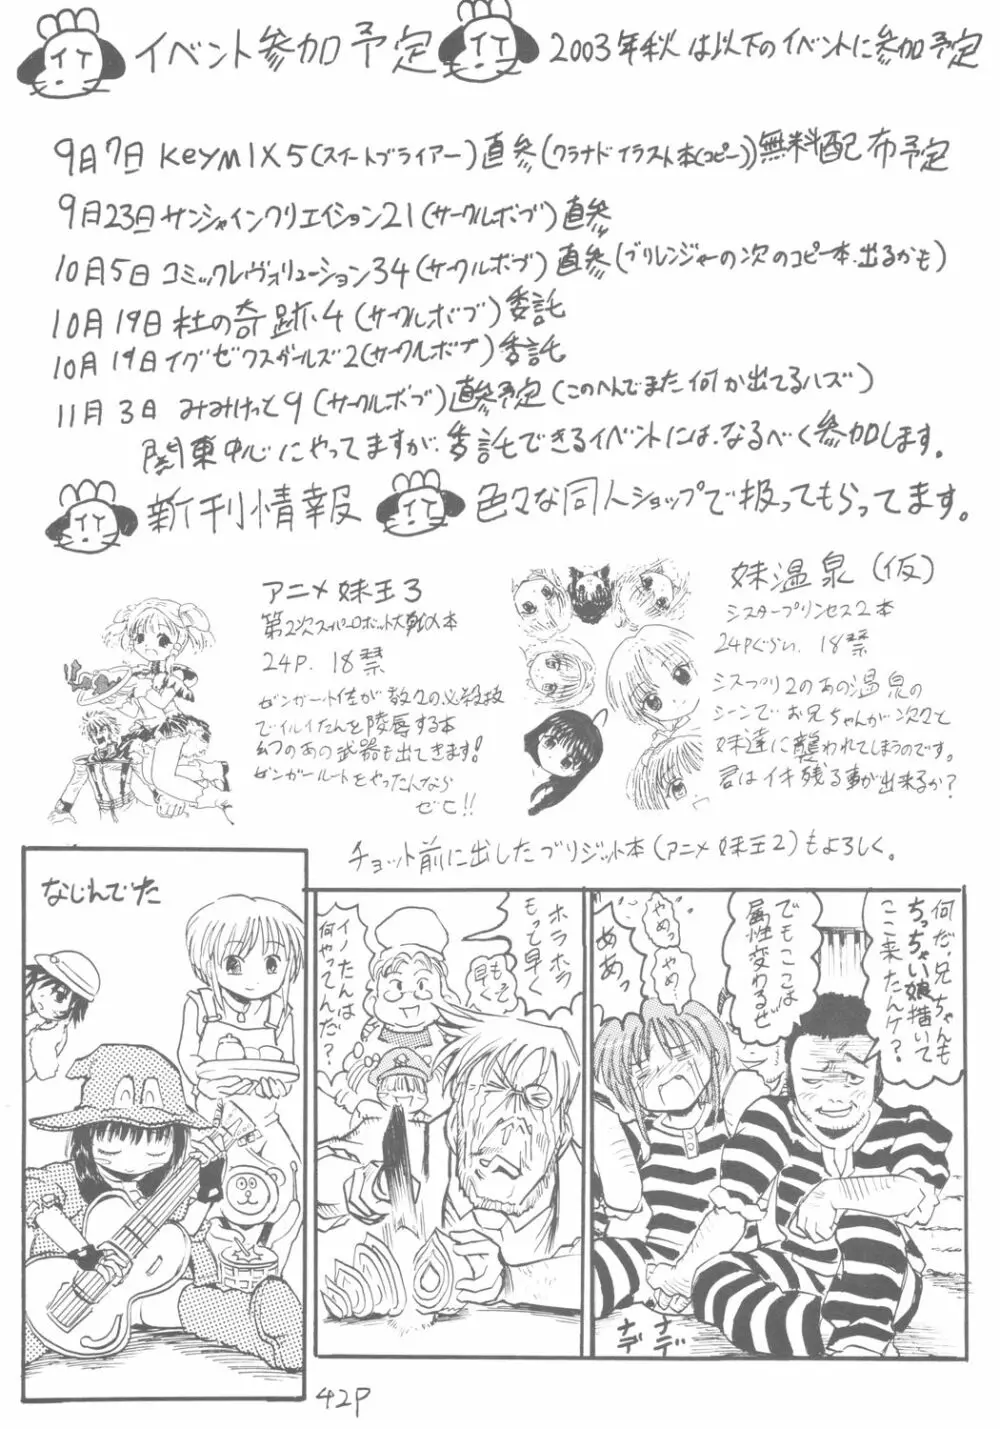 イベント参加予定
2003年秋は以下のイベントに参加予定
9月7日 KeyMIX5(スイートブライアー)直参(クラナドイラスト本(コピー))無料配布予定
9月23日サンシャインクリエイション21(サークルボブ)直参
10月5日 コミックレヴォリューション34(サークルボブ)直参(ブリレンジャーの次のコピー本.出るかも)
10月19日杜の奇跡.4(サークルボブ)委託
10月19日イグゼクスガールズ2(サークルボブ)委託
11月3日 みみけっと9(サークルボブ)直参予定(このへんでまた何か出てるハズ)
関東中心にやってますが、委託できるイベントには、なるべく参加します。
新刊情報
色々な同人ショップで扱ってもらってます。
アニメ妹王3
第2次スーパーロボット大戦α本
24P. 18禁
ゼンガー少佐が数々の必殺技
でイルイたんを陵辱する本
幻のあの武器も出てきます!
ゼンガールートをやったんなら
ゼヒ!!
妹温泉(仮)
シスタープリンセス2本
24Pぐらい 18禁
シスプリ2のあの温泉の
シーンでお兄ちゃんが次々と
妹達に襲われてしまうのです。
君はイキ残る事が出来るか?
チョット前に出したブリジット本(アニメ妹王2)もよろしく。
なじんでた
何だ、兄ちゃんも
ちっちゃい娘描いて
ここ来たんケ?
でもここは
属性変わるぜ
やめっ
やめ
あっ
あぁ
ナデ
ナデ
ホラホラ
もって早く
早く
イノたんは
何やってんだ?
42P